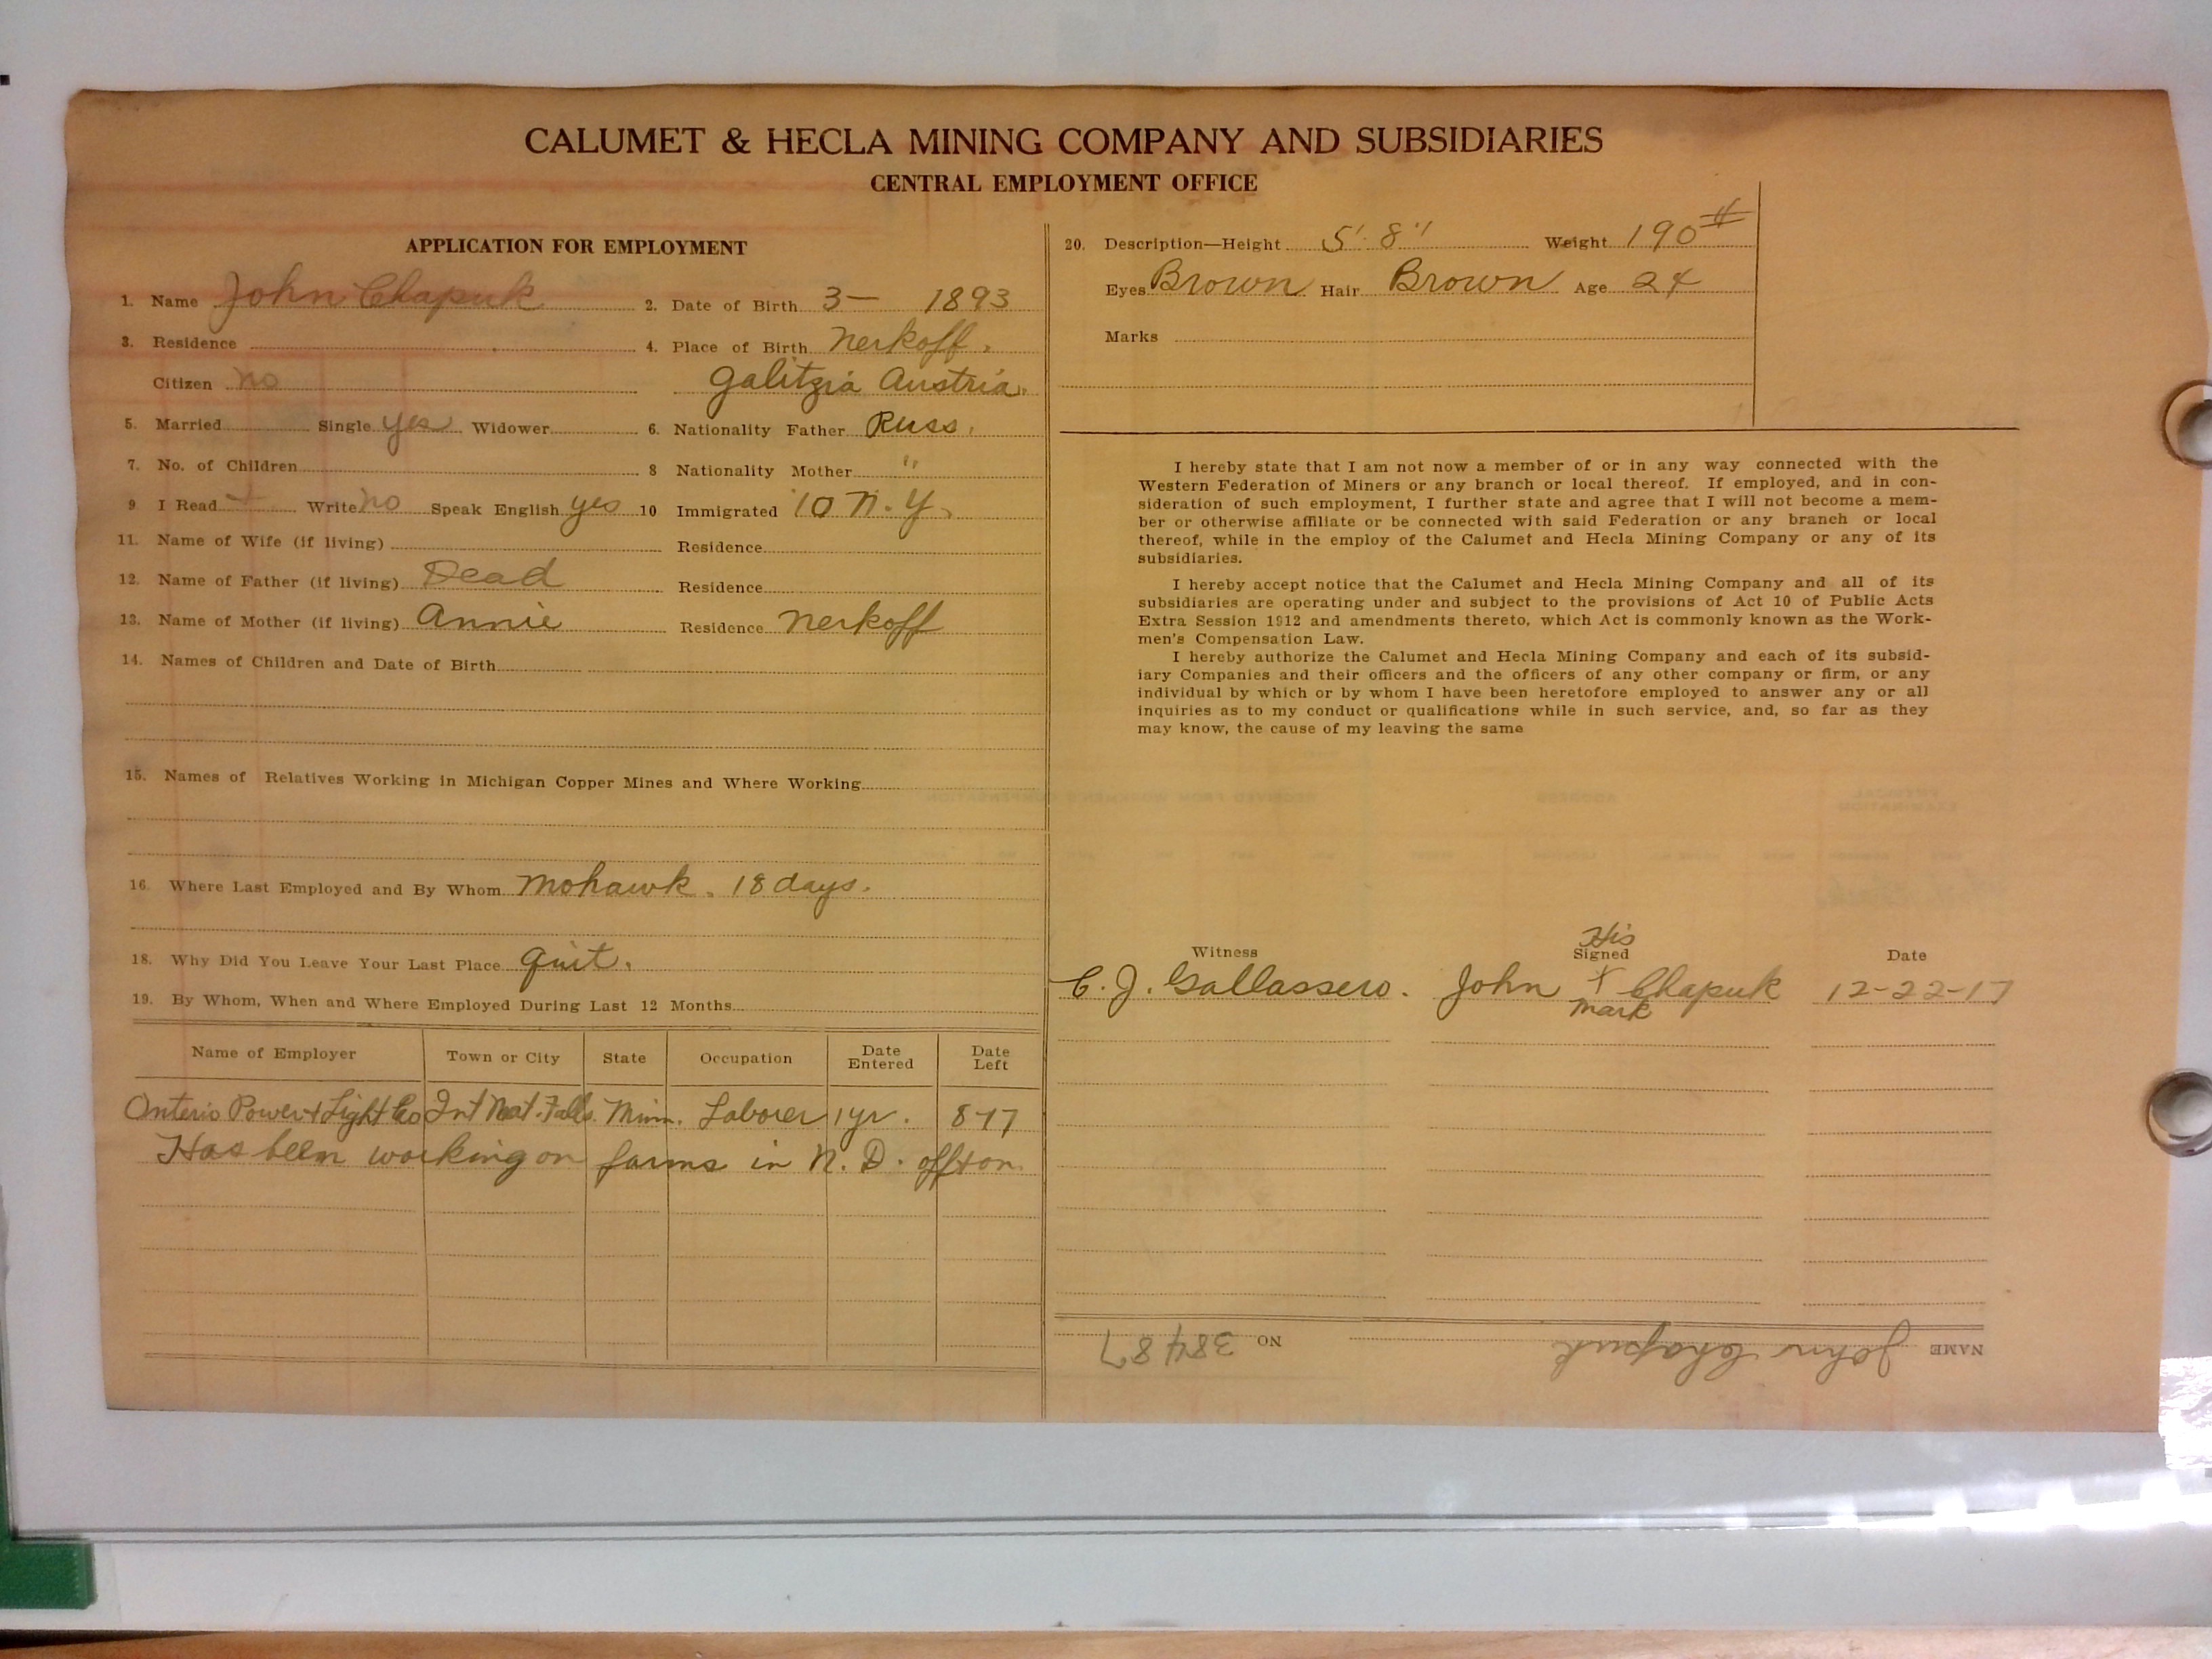 CALUMET & HECLA MINING COMPANY AND SUBSIDIARIES
CENTRAL EMPLOYMENT OFFICE
APPLICATION FOR EMPLOYMENT
1. Name John Chapuk 2. Date of Birth 3— 1893
3. Residence 4. Place of Birth Nerkoff,
Citizen no Galitzia Austria.
5. Married Single yes Widower 6. Nationality Father Russ.
7. No. of Children 8 Nationality Mother "
9 I Read + Write no Speak English yes 10 Immigrated '10 N.Y.
11. Name of Wife (if living) Residence
12. Name of Father (if living) Dead Residence
13. Name of Mother (if living) Annie Residence Nerkoff
14. Names of Children and Date of Birth
15. Names of Relatives Working in Michigan Copper Mines and Where Working
16. Where Last Employed and By Whom Mohawk. 18 days.
18. Why Did You Leave Your Last Place quit.
19. By Whom, When and Where Employed During Last 12 Months
Name of Employer Town or City State Occupation Date Entered Date Left
Onterio Power + Light Co Int Nat. Falls. Minn. Laborer 1 yr. 8-17
Has been working on farms in N. D. off + on.
20. Description—Height 5' 8" Weight 190 #
Eyes Brown Hair Brown Age 24
Marks
I hereby state that I am not now a member of or in any way connected with the
Western Federation of Miners or any branch or local thereof. If employed, and in con-
sideration of such employment, I further state and agree that I will not become a mem-
ber or otherwise affiliate or be connected with said Federation or any branch or local
thereof, while in the employ of the Calumet and Hecla Mining Company or any of its
subsidiaries.
I hereby accept notice that the Calumet and Hecla Mining Company and all of its
subsidiaries are operating under and subject to the provisions of Act 10 of Public Acts
Extra Session 1912 and amendments thereto, which Act is commonly known as the Work-
men's Compensation Law.
I hereby authorize the Calumet and Hecla Mining Company and each of its subsid-
iary Companies and their officers and the officers of any other company or firm, or any
individual by which or by whom I have been heretofore employed to answer any or all
inquiries as to my conduct or qualifications while in such service, and, so far as they
may know, the cause of my leaving the same
His
Witness Signed Date
C. J. Gallassero. John X Chapuk 12-22-17
mark
NAME John Chapuk NO 38487